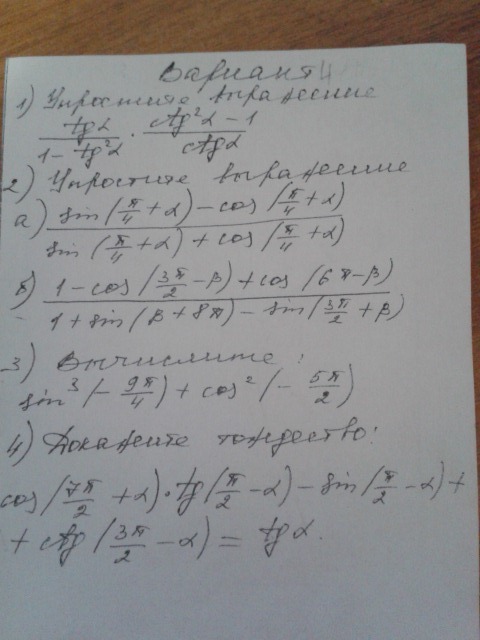 Вариант 4
1) Упростите выражение
tgα / (1 - tg²α) · (ctg²α - 1) / ctgα
2) Упростите выражение
а) (sin(π/4 + α) - cos(π/4 + α)) / (sin(π/4 + α) + cos(π/4 + α))
б) (1 - cos(3π/2 - β) + cos(6π - β)) / (1 + sin(β + 8π) - sin(3π/2 + β))
3) Вычислите:
sin³(- 9π/4) + cos²(- 5π/2)
4) Докажите тождество:
cos(7π/2 + α) · tg(π/2 - α) - sin(π/2 - α) +
+ ctg(3π/2 - α) = tgα.